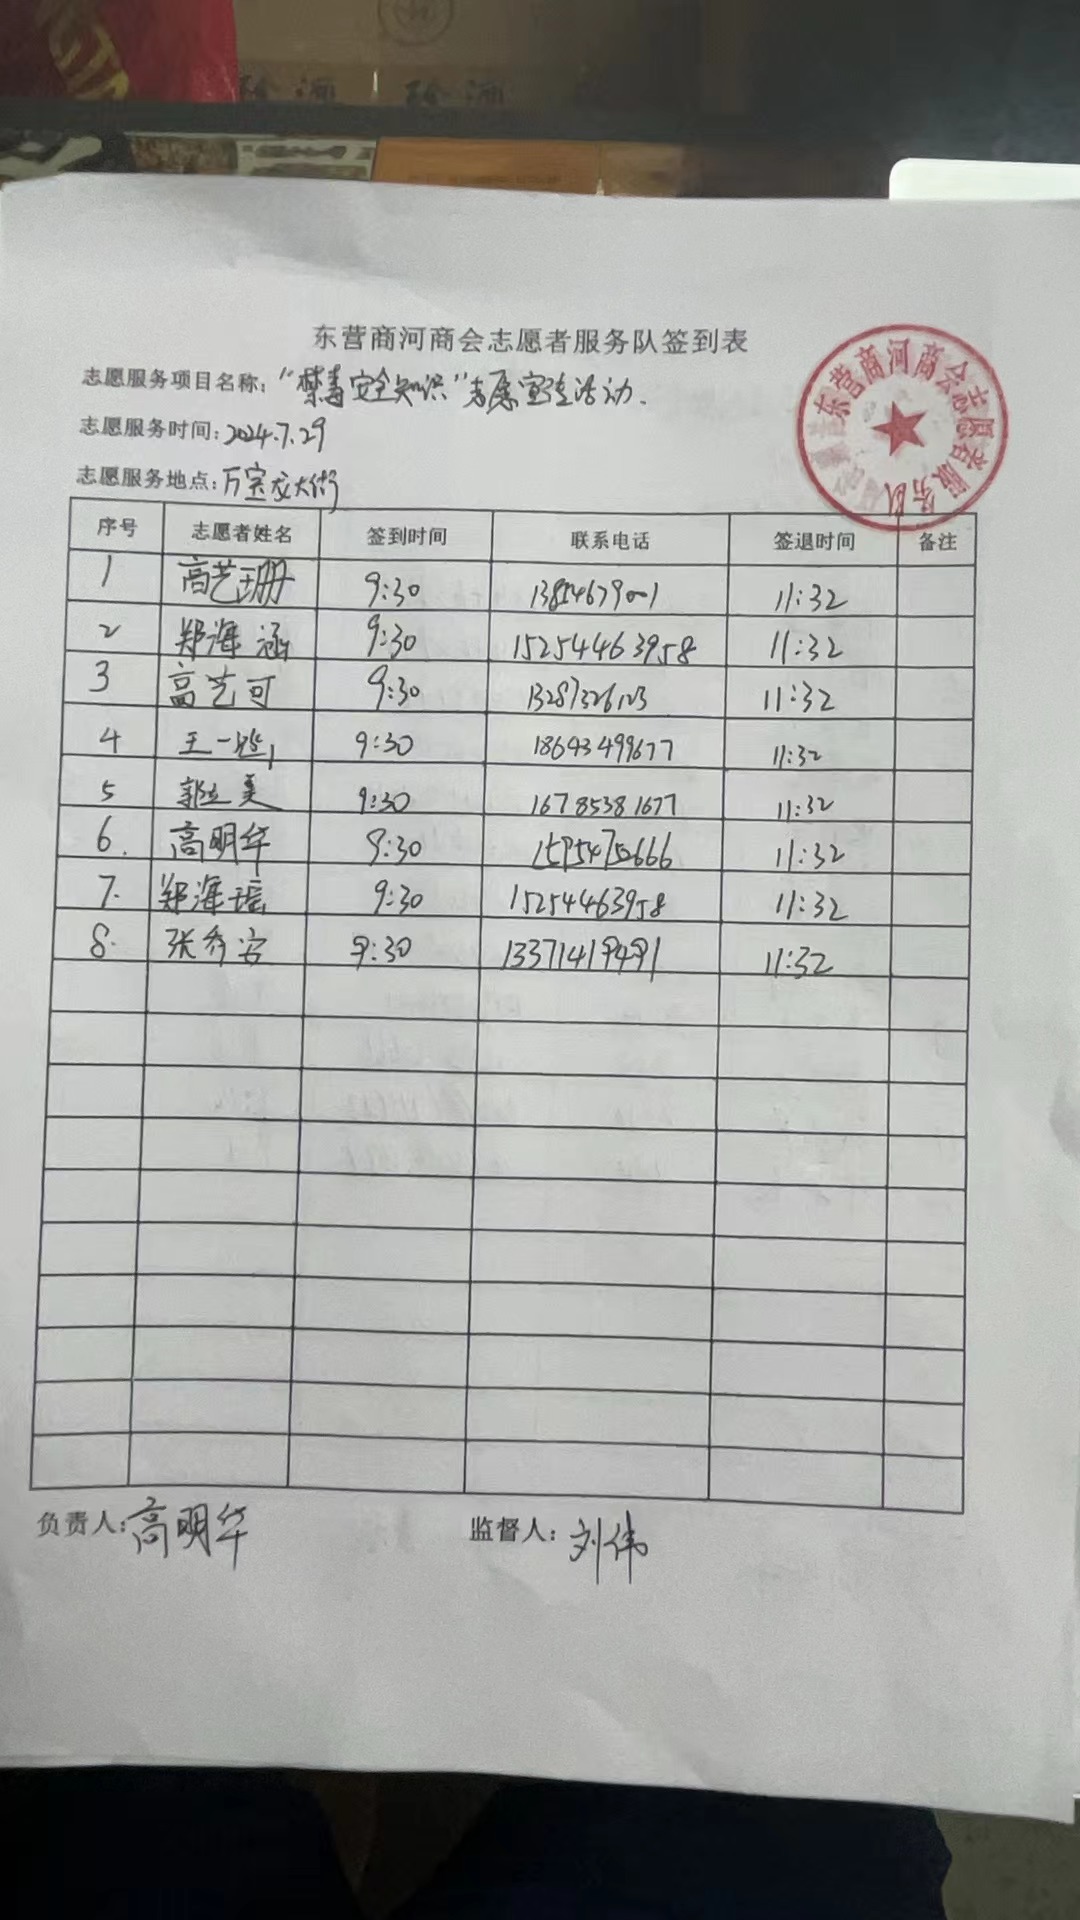 东营商河商会志愿者服务队签到表
志愿服务项目名称："禁毒安全知识"志愿宣传活动.
志愿服务时间：2024.7.29
志愿服务地点：万宝龙大街
东营商河商会志愿者服务队
序号 志愿者姓名 签到时间 联系电话 签退时间 备注
1 高艺珊 9:30 13854679001 11:32
2 郑海涵 9:30 15254463958 11:32
3 高艺可 9:30 13287326123 11:32
4 王一 9:30 18643499677 11:32
5 郭立美 9:30 16785381677 11:32
6. 高明华 9:30 15954752666 11:32
7. 郑海瑶 9:30 15254463958 11:32
8. 张乔安 9:30 13371419491 11:32
负责人：高明华 监督人：刘伟